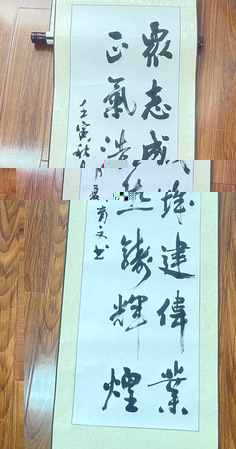 衆志成城建偉業
正氣浩然鑄輝煌
壬寅秋